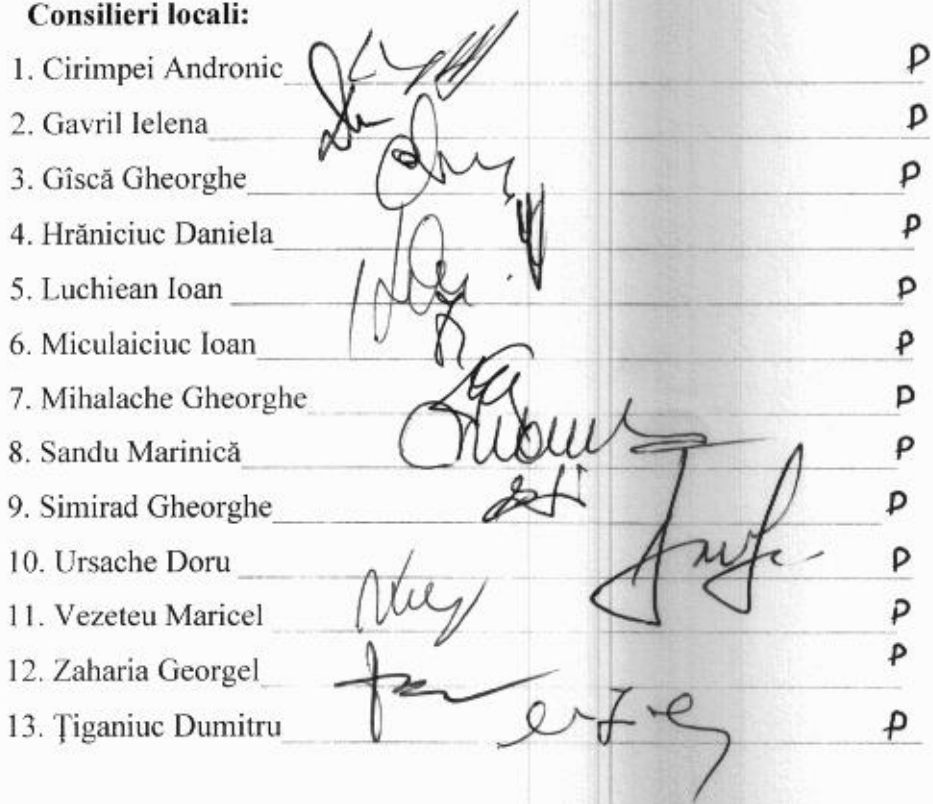 Consilieri locali:
1. Cirimpei Andronic P
2. Gavril Ielena P
3. Gîscă Gheorghe P
4. Hrăniciuc Daniela P
5. Luchiean Ioan P
6. Miculaiciuc Ioan P
7. Mihalache Gheorghe P
8. Sandu Marinică P
9. Simirad Gheorghe P
10. Ursache Doru P
11. Vezeteu Maricel P
12. Zaharia Georgel P
13. Ţiganiuc Dumitru P